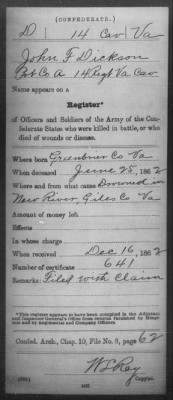 (CONFEDERATE.)
D 14 Cav Va
John F Dickson
Pvt Co A 14 Regt Va Cav
Name appears on a
Register*
of Officers and Soldiers of the Army of the Confederate States who were killed in battle, or who
died of wounds or disease.
Where born Greenbrier Co Va
When deceased June 28, 1862
Where and from what cause Drowned in
New River, Giles Co Va
Amount of money left
Effects
In whose charge
When received Dec 16, 1862
Number of certificate 641
Remarks: Filed with Claim
*This register appears to have been compiled in the Adjutant
and Inspector General's Office from returns furnished by Hospitals
and by Regimental and Company Officers.
Confed. Arch., Chap. 10, File No. 8, page 62
W S Ray
Copyist.